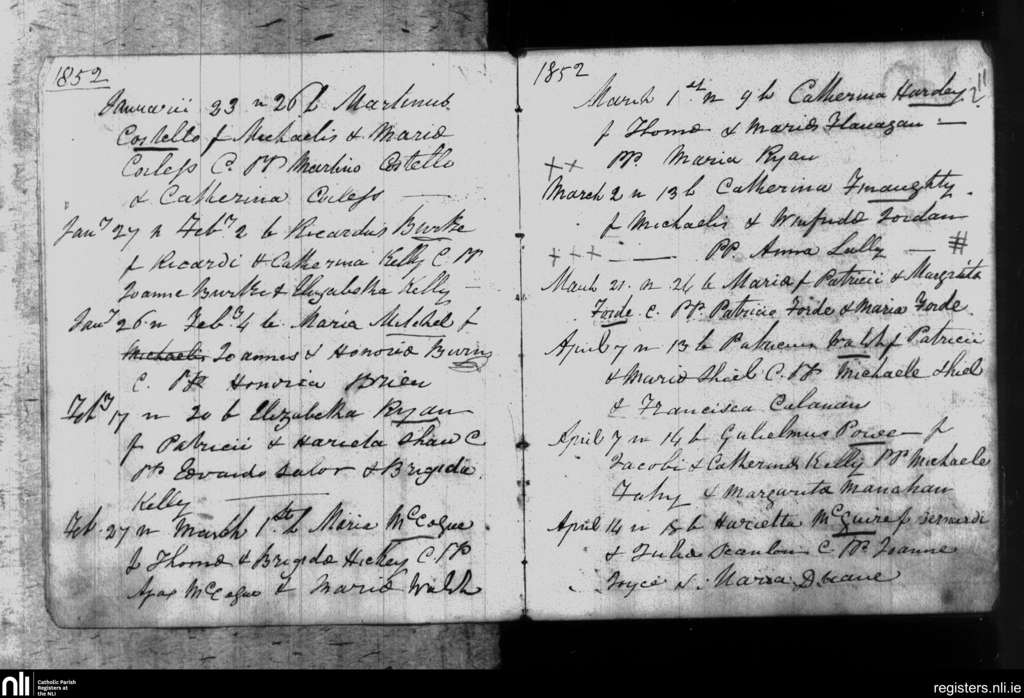 1852
Januarii 23 n 26 b Martinus
Costello f Michaelis & Maria
Corless C. PP Martino Costello
& Catherina Corless
Jany 27 n Feby 2 b Ricardus Burke
f Ricardi & Catherina Kelly C PP
Joanne Burke & Elizabetha Kelly
Jany 26 n Feby 4 b Maria Mitchel f
Michaelis Joannes & Honoria
C. PP Honoria Brien
Feby 17 n 20 b Elizabetha Ryan
f Patricii & Harieta Shaw C
PP Edvardo & Brigida
Kelly
Feb 27 n March 1st b Maria McCogue
f Thoma & Brigida Hickey C PP
McCogue & Maria Walsh
1852
March 1st n 9 b Catherina Hardey
f Thoma & Maria Flanagan
PP Maria Ryan
++
March 2 n 13 b Catherina Finaughty
f Michaelis & Winifrida Jordan
+++ PP Anna Lally #
March 21 n 24 b Maria f Patricii & Margrita
Forde C. PP. Patricio Forde & Maria Forde
April 7 n 13 b Patricius Walsh f Patricii
& Maria Shiel C. PP Michaele Shiel
& Francisca Calanan
April 7 n 14 b Gulielmus Power f
Jacobi & Catherina Kelly PP Michaele
Fahy & Margarita Manahan
April 14 n 15 b Harietta McGuire f Bernardi
& Julia Scanlon C PP Joanne
Joyce & Maria Duane
nli
Catholic Parish
Registers at
the NLI
registers.nli.ie